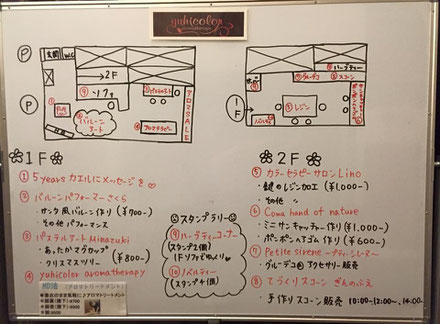 yuhicolor
aromatherapy
P
玄関
W.C
→2F
P
ソファ
バルーンアート
アロマSALE
④アロマテラピー
ハーブティー
⑦グルーデコ
⑧スコーン
⑤レジン
1F
❀1F❀
①5yearsカエルにメッセージを♡
②バルーンパフォーマーさくら
・サンタ風バルーン作り(¥700-)
・その他パフォーマンス
③パステルアートMinazuki
・あったかマグカップ
・クリスマスツリー(¥800-)
④yuhicolor aromatherapy
[アロマトリートメント]
☺スタンプラリー☺
⑨ハーブティーコーナー
(スタンプ2個)
1Fソファでゆっくり♡
⑩ノベルティー
(スタンプ4個)
❀2F❀
⑤カラーセラピーサロンLino
・鍵のレジン加工(¥1,000-)
・その他
⑥Coma hand of nature
・ミニサンキャッチャー作り(¥1,000-)
・ポンポンヘアゴム作り(¥600-)
⑦Petite Sirene -プティ・シレーヌ-
・グルーデコ アクセサリー販売
⑧てづくりスコーン ぎんのふえ
・手作りスコーン販売 10:00-12:00-, 14:00-